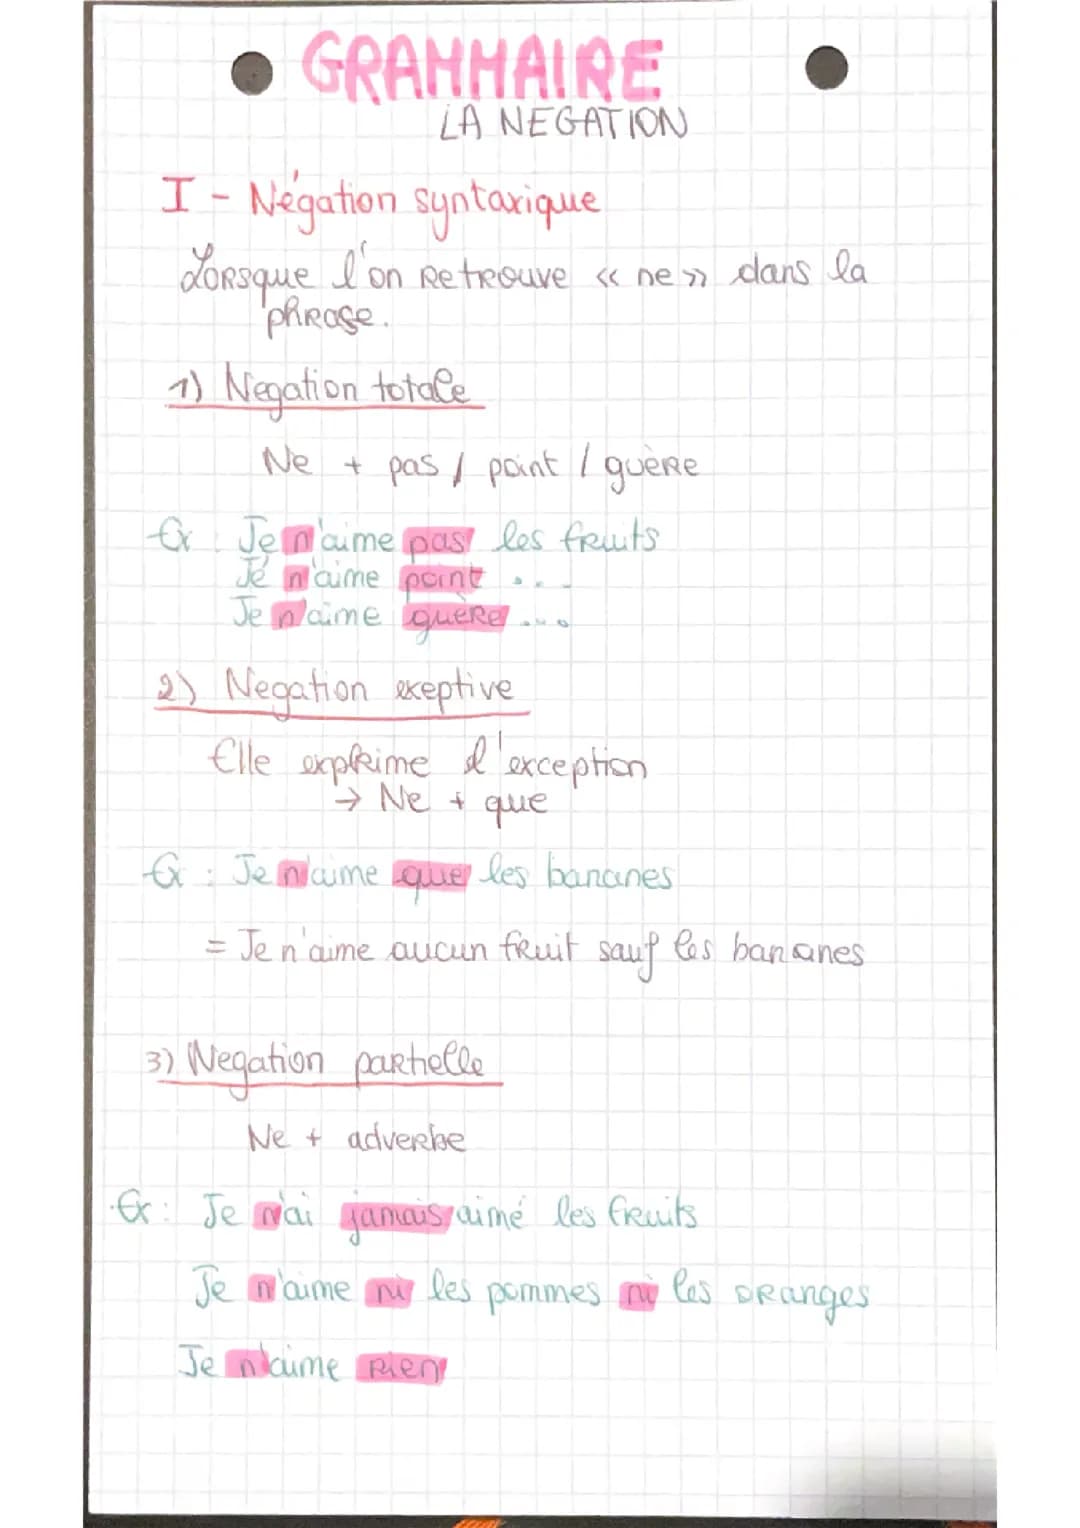 GRAMMAIRE
LA NEGATION
I - Négation syntaxique
Lorsque l'on retrouve « ne » dans la
phrase.
1) Negation totale
Ne + pas / point / guère
Ex : Je n'aime pas les fruits
Je n'aime point ...
Je n'aime guère ...
2) Negation exeptive
Elle exprime l'exception
→ Ne + que
Ex : Je n'aime que les bananes
= Je n'aime aucun fruit sauf les bananes
3) Negation partielle
Ne + adverbe
Ex : Je n'ai jamais aimé les fruits
Je n'aime ni les pommes ni les oranges
Je n'aime rien